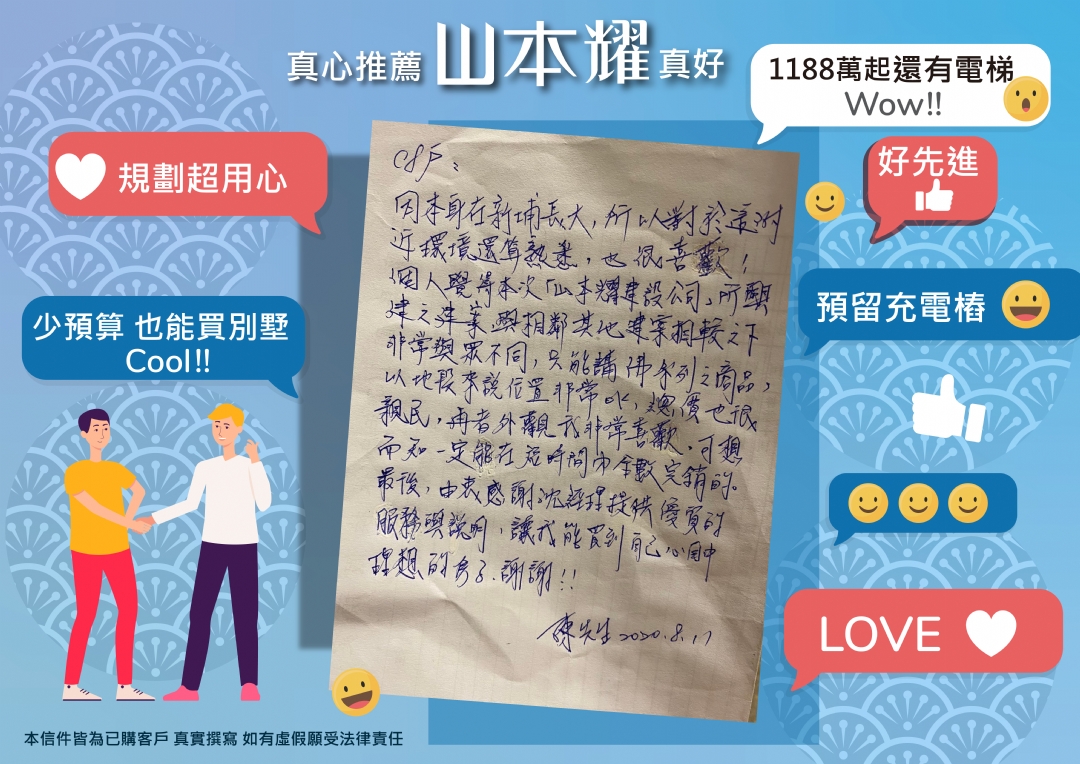 真心推薦 山本耀 真好
1188萬起還有電梯
Wow!!
規劃超用心
好先進
少預算 也能買別墅
Cool!!
預留充電樁
LOVE
C8戶:
因本身在新埔長大,所以對於這附
近環境還算熟悉,也很喜歡!
個人覺得本次「山本耀建設公司」所興
建之建案與相鄰其他建案相較之下
非常與眾不同,只能講佛系列之商品,
以地段來說位置非常OK,總價也很
親民,再者外觀我非常喜歡,可想
而知一定能在短時間內全數完銷的。
最後,由衷感謝沈經理提供優質的
服務與說明,讓我能買到自己心目中
理想的房子.謝謝!!
陳先生 2020.8.17
本信件皆為已購客戶 真實撰寫 如有虛假願受法律責任